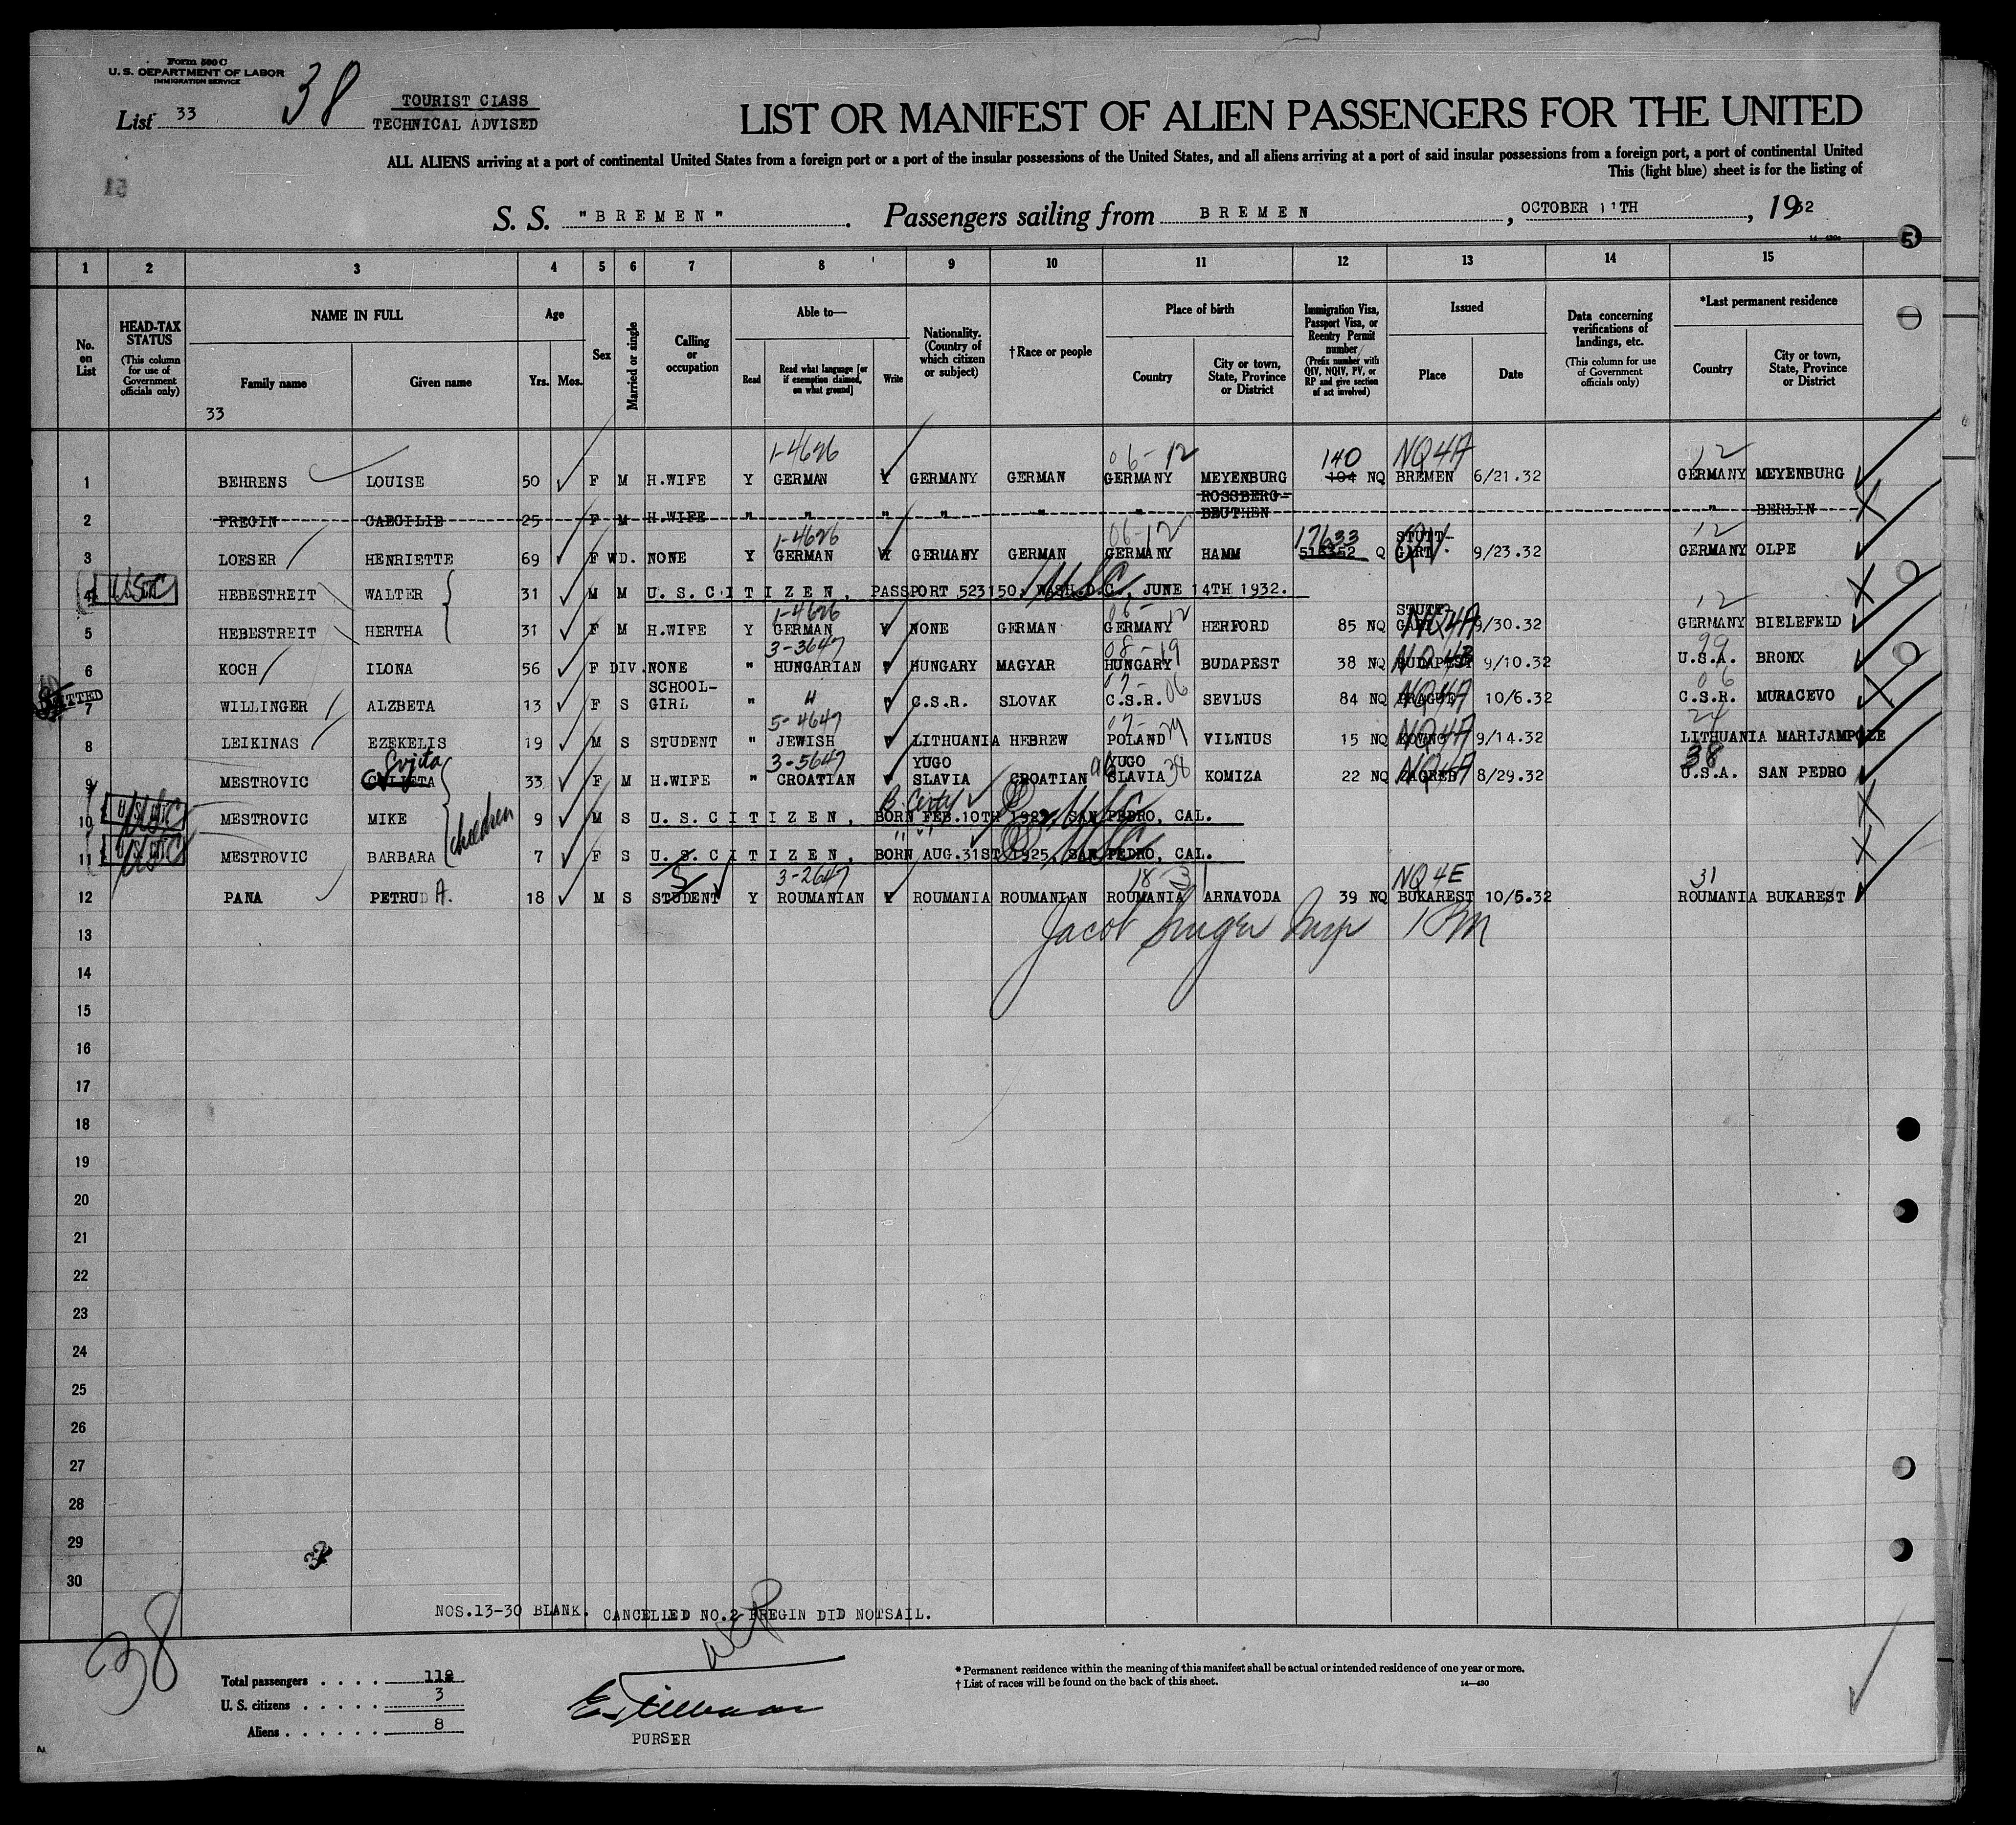 Form 500 C
U. S. DEPARTMENT OF LABOR
IMMIGRATION SERVICE
List 33
38
TOURIST CLASS
TECHNICAL ADVISED
LIST OR MANIFEST OF ALIEN PASSENGERS FOR THE UNITED
ALL ALIENS arriving at a port of continental United States from a foreign port or a port of the insular possessions of the United States, and all aliens arriving at a port of said insular possessions from a foreign port, a port of continental United
This (light blue) sheet is for the listing of
S. S. "BREMEN". Passengers sailing from BREMEN, OCTOBER 11TH, 1932
14—430
5
1 2 3 4 5 6 7 8 9 10 11 12 13 14 15
No. on List
HEAD-TAX STATUS (This column for use of Government officials only)
NAME IN FULL Family name Given name
Age Yrs. Mos.
Sex
Married or single
Calling or occupation
Able to— Read Read what language [or if exemption claimed, on what ground] Write
Nationality. (Country of which citizen or subject)
†Race or people
Place of birth Country City or town, State, Province or District
Immigration Visa, Passport Visa, or Reentry Permit number (Prefix number with QIV, NQIV, PV, or RP and give section of act involved)
Issued Place Date
Data concerning verifications of landings, etc. (This column for use of Government officials only)
*Last permanent residence Country City or town, State, Province or District
33
1-4626 06-12 140 NQ4A 12
1 BEHRENS LOUISE 50 F M H.WIFE Y GERMAN Y GERMANY GERMAN GERMANY MEYENBURG 104 NQ BREMEN 6/21.32 GERMANY MEYENBURG
2 FREGIN CAECILIE 25 F M H.WIFE " " " " " " ROSSBERG-BEUTHEN " BERLIN
1-4626 06-12 17633 QIV. 12
3 LOESER HENRIETTE 69 F WD. NONE Y GERMAN Y GERMANY GERMAN GERMANY HAMM Q STUTT-GART 9/23.32 GERMANY OLPE
4 USC HEBESTREIT WALTER 31 M M U.S.CITIZEN, PASSPORT 523150, WASH.D.C., JUNE 14TH 1932. USC
1-4626 06-12 NQ4A 12
5 HEBESTREIT HERTHA 31 F M H.WIFE Y GERMAN Y NONE GERMAN GERMANY HERFORD 85 NQ STUTT-GART 9/30.32 GERMANY BIELEFELD
3-3647 08-19 99
6 KOCH ILONA 56 F DIV. NONE " HUNGARIAN " HUNGARY MAGYAR HUNGARY BUDAPEST 38 NQ BUDAPEST 9/10.32 U.S.A. BRONX
NQ4A 06
7 WILLINGER ALZBETA 13 F S SCHOOL-GIRL " " " C.S.R. SLOVAK C.S.R. 06 SEVLUS 84 NQ PRAGUE 10/6.32 C.S.R. MURACEVO
5-4647 NQ4A 24
8 LEIKINAS EZEKELIS 19 M S STUDENT " JEWISH " LITHUANIA HEBREW POLAND VILNIUS 15 NQ KOVNO 9/14.32 LITHUANIA MARIJAMPOLE
Cvjeta 3-5647 NQ4A 38
9 MESTROVIC 33 F M H.WIFE " CROATIAN " YUGO SLAVIA CROATIAN YUGO SLAVIA 38 KOMIZA 22 NQ ZAGREB 8/29.32 U.S.A. SAN PEDRO
10 USC MESTROVIC MIKE 9 M S U.S.CITIZEN, BORN FEB.10TH 1923, SAN PEDRO, CAL. USC
children
11 USC MESTROVIC BARBARA 7 F S U.S.CITIZEN, BORN AUG.31ST 1925, SAN PEDRO, CAL. USC
3-2647 NQ4E 31
12 PANA PETRU A. 18 M S STUDENT Y ROUMANIAN Y ROUMANIA ROUMANIAN ROUMANIA ARNAVODA 39 NQ BUKAREST 10/5.32 ROUMANIA BUKAREST
13
Jacob Singer Insp
14
15
16
17
18
19
20
21
22
23
24
25
26
27
28
29
30
NOS.13-30 BLANK. CANCELLED NO.2 FREGIN DID NOTSAIL.
38
Total passengers . . . . 11
U. S. citizens . . . . . 3
Aliens . . . . . . 8
PURSER
* Permanent residence within the meaning of this manifest shall be actual or intended residence of one year or more.
† List of races will be found on the back of this sheet.
14—430